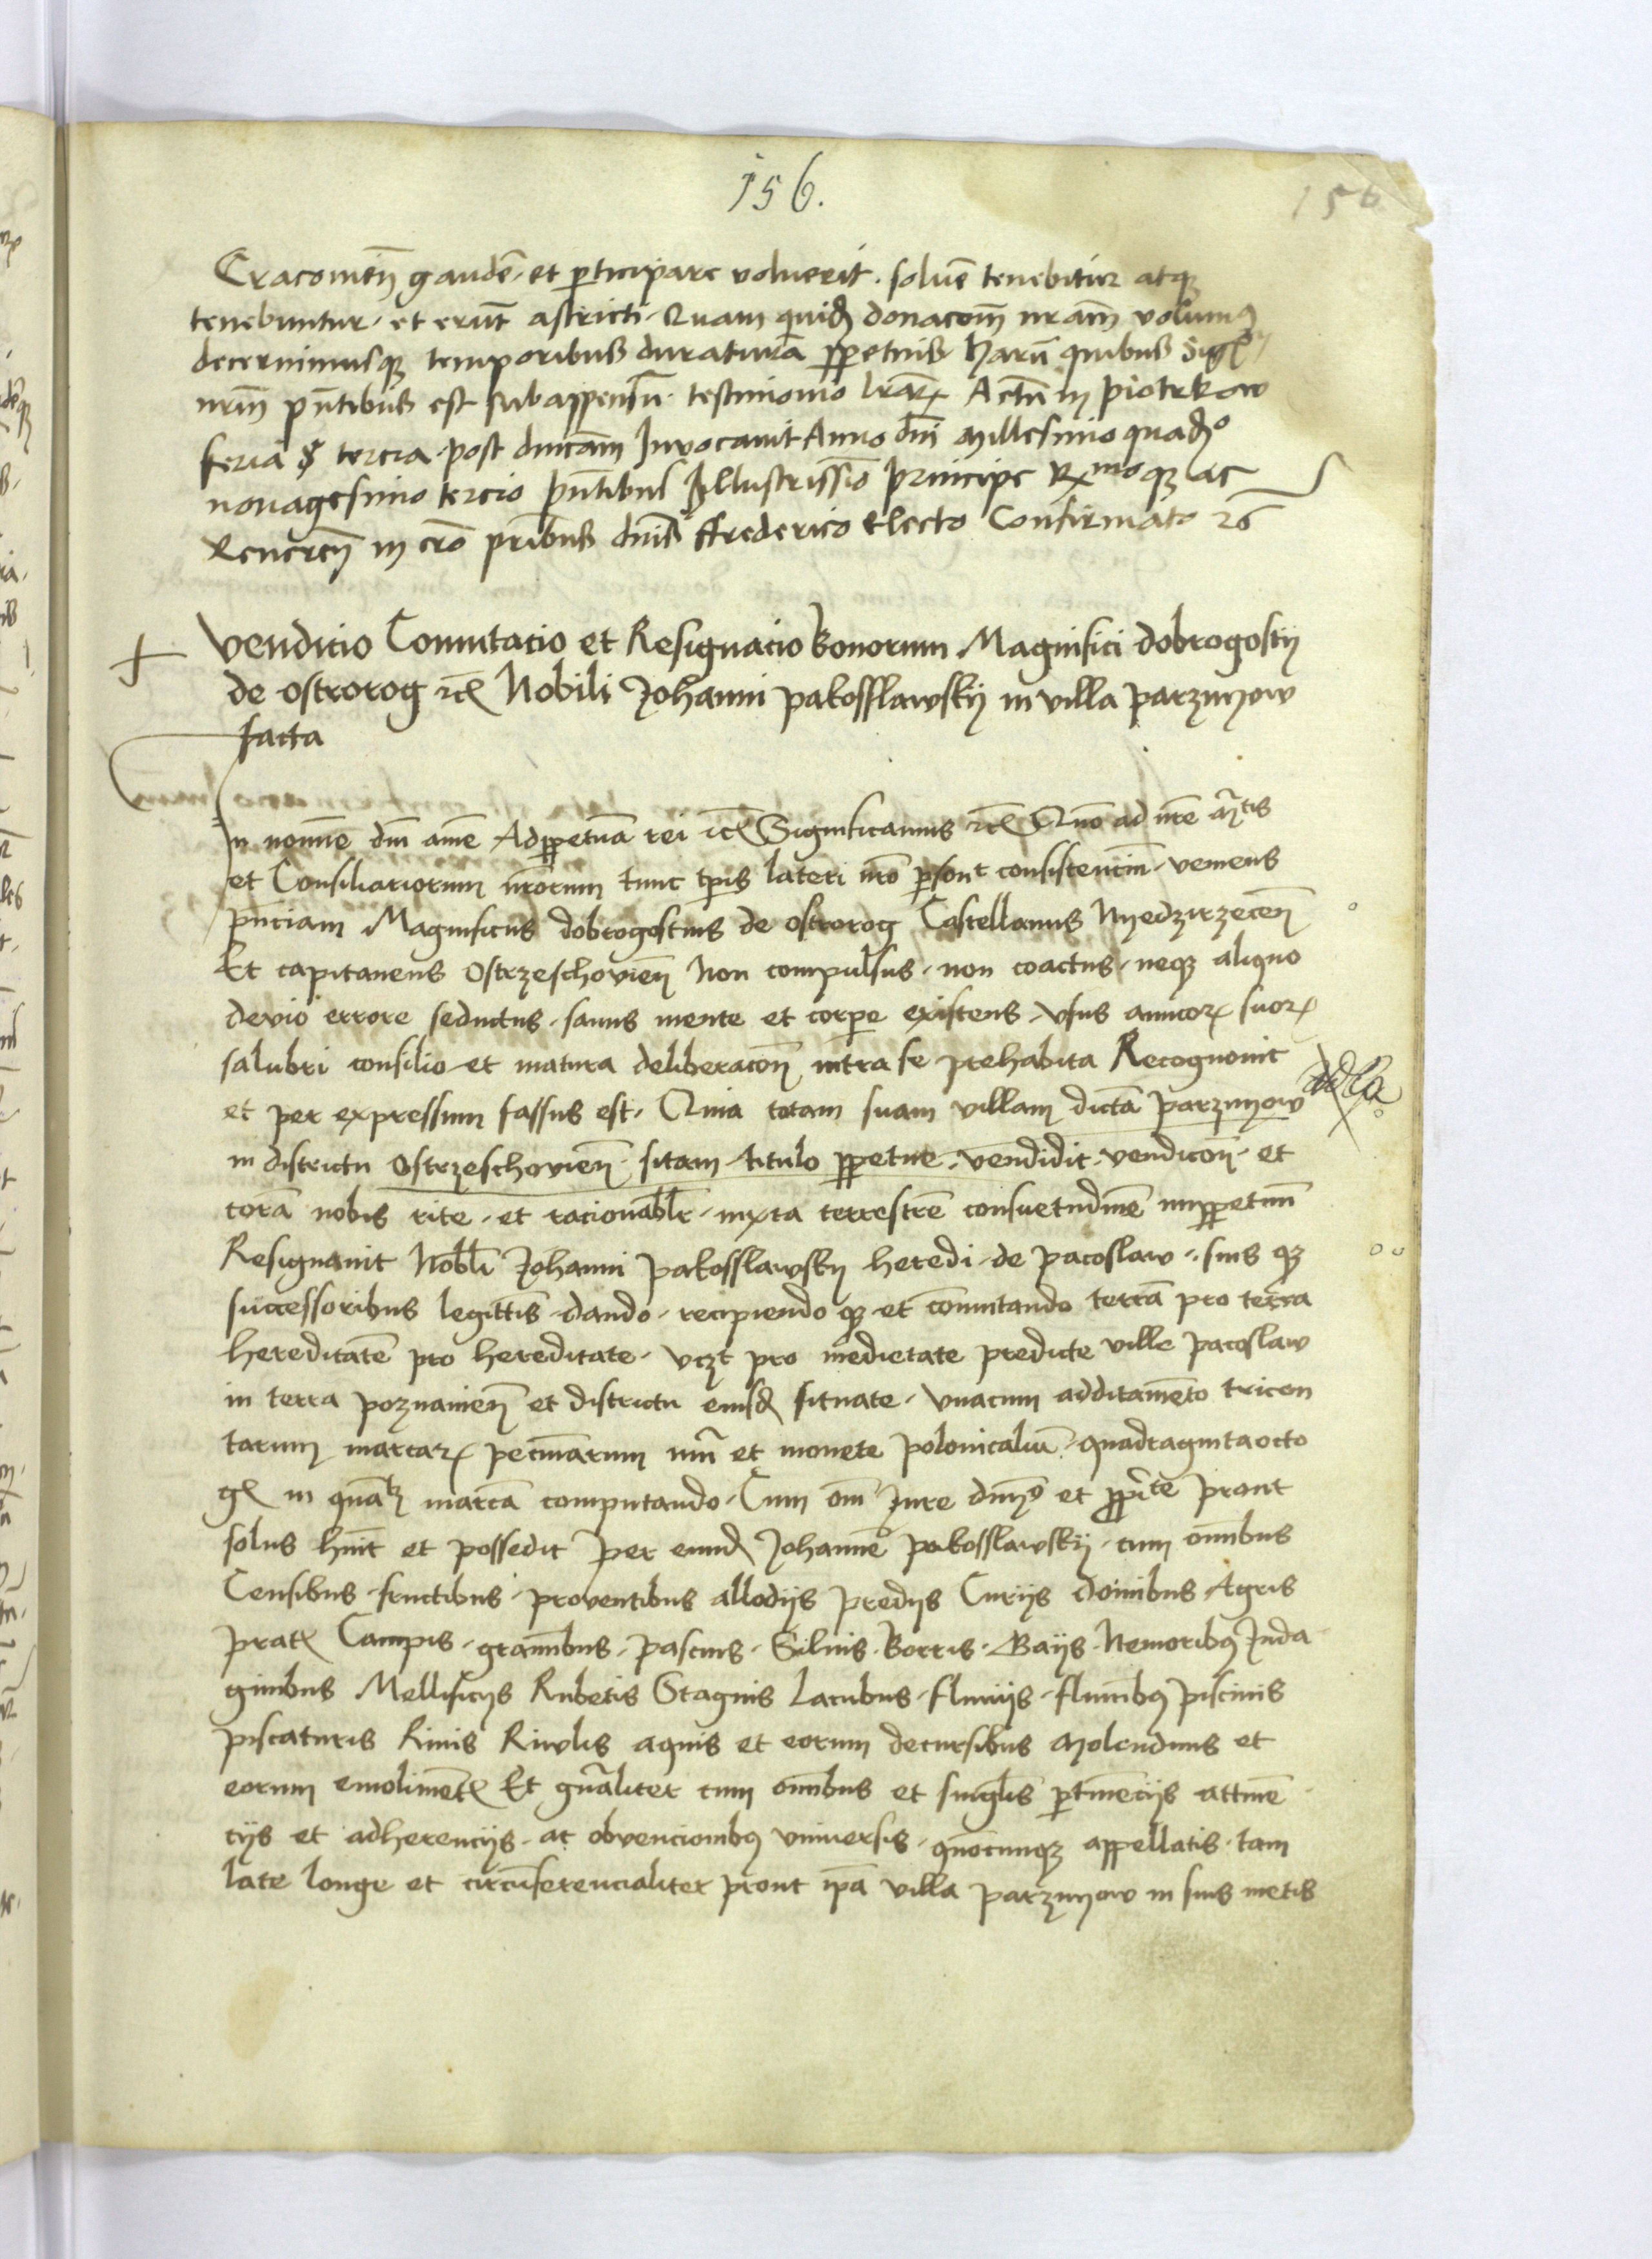 156.
156
Cracovien̄ gaudē et ꝑticipare voluerit. soluē tenebitur atqꝫ
tenebuntur et erūt astricti. Quam quidē donacōm nrām volumꝰ
decernimusqꝫ temporibus duraturā ꝑpetuis Harū quibus Sigl̄
nrm̄ pn̄tibus est subappensū testimonio lrārꝝ Actū in Piotrkow
feria tercia post dn̄icam Invocavit Anno dn̄i Millesimo quadꝛo
nonagesimo tercio pn̄tibus Illustrissīo principe Rx̄moqꝫ ac
Reueren̄ in cr̄o prībus dn̄is Frederico Electo Confirmato ꝛc̄
Venditio Comutacio et Resignacio bonorum Magnifici dobrogostij
de ostrorog ꝛc̄ Nobili Johanni pakosslawskij in villa parzynow
facta
In nomīe dn̄i amē Adꝑpetuā rei ꝛc̄ Significamus ꝛc̄ Quō ad nr̄e
et Consiliariorum nrōrum tunc tp̄is lateri nrō consistenciū veniens
pn̄ciam Magnificus dobrogostius de ostrorog Castellanus Myedzirzecen̄
Et capitaneus Ostrzeschovien̄ Non compulsus non coactus neqꝫ aliquo
devio errore seductus sanus mente et corpe existens Vsus amicorꝝ suorꝝ
salubri consilio et matura deliberacōn̄ intra se prehabita Recognouit
et per expressum fassus est. Quia totam suam villam dictā parzynow
in districtu Ostrzeschovien̄ sitam titulo ꝑpetue vendidit vendicōn̄ et
corā nobis rite et racionabl̄r iuxta terrestrē consuetudinē imꝑpetuū
Resignauit Nobl̄i Johanni pakosslawskij heredi de pacoslaw suis qꝫ
successoribus legittīs dando recipiendo qꝫ et cōmutando terrā pro terra
hereditatē pro hereditate vczt pro medietate predicte ville pacoslaw
in terra poznanien̄ et districtu eiusdē situate Vnacum additamēto tricen
tarum marcarꝝ pecuniarum nūi et monete polonicaliū quadragintaocto
gꝝ in quālꝫ marcā computando Cum om̄i Jure dn̄ioꝰ et ꝓpri̇te prout
solus huīt et possedit per eundē Johannē pakosslawskij cum omībus
Censibus fructibus proventibus allodijs predijs Curijs domibus Agris
pratꝭ Campis gramībus pascuis Siluis Borris Gaijs Nemoribꝰ Inda
ginibus Mellificijs Rubetis Stagnis lacubus fluuijs flumībꝰ piscinis
piscaturis Riuis Riwlis aquis et eorum decursibus Molendinis et
eorum emolimētꝭ Et gn̄aliter cum omībus et singlīs ꝑtinēcijs attinē
cijs et adherencijs ac obvencionibꝰ vniuersis quocunqꝫ appellatis tam
late longe et circūferencialiter prout ip̄a villa parzynow in suis metis